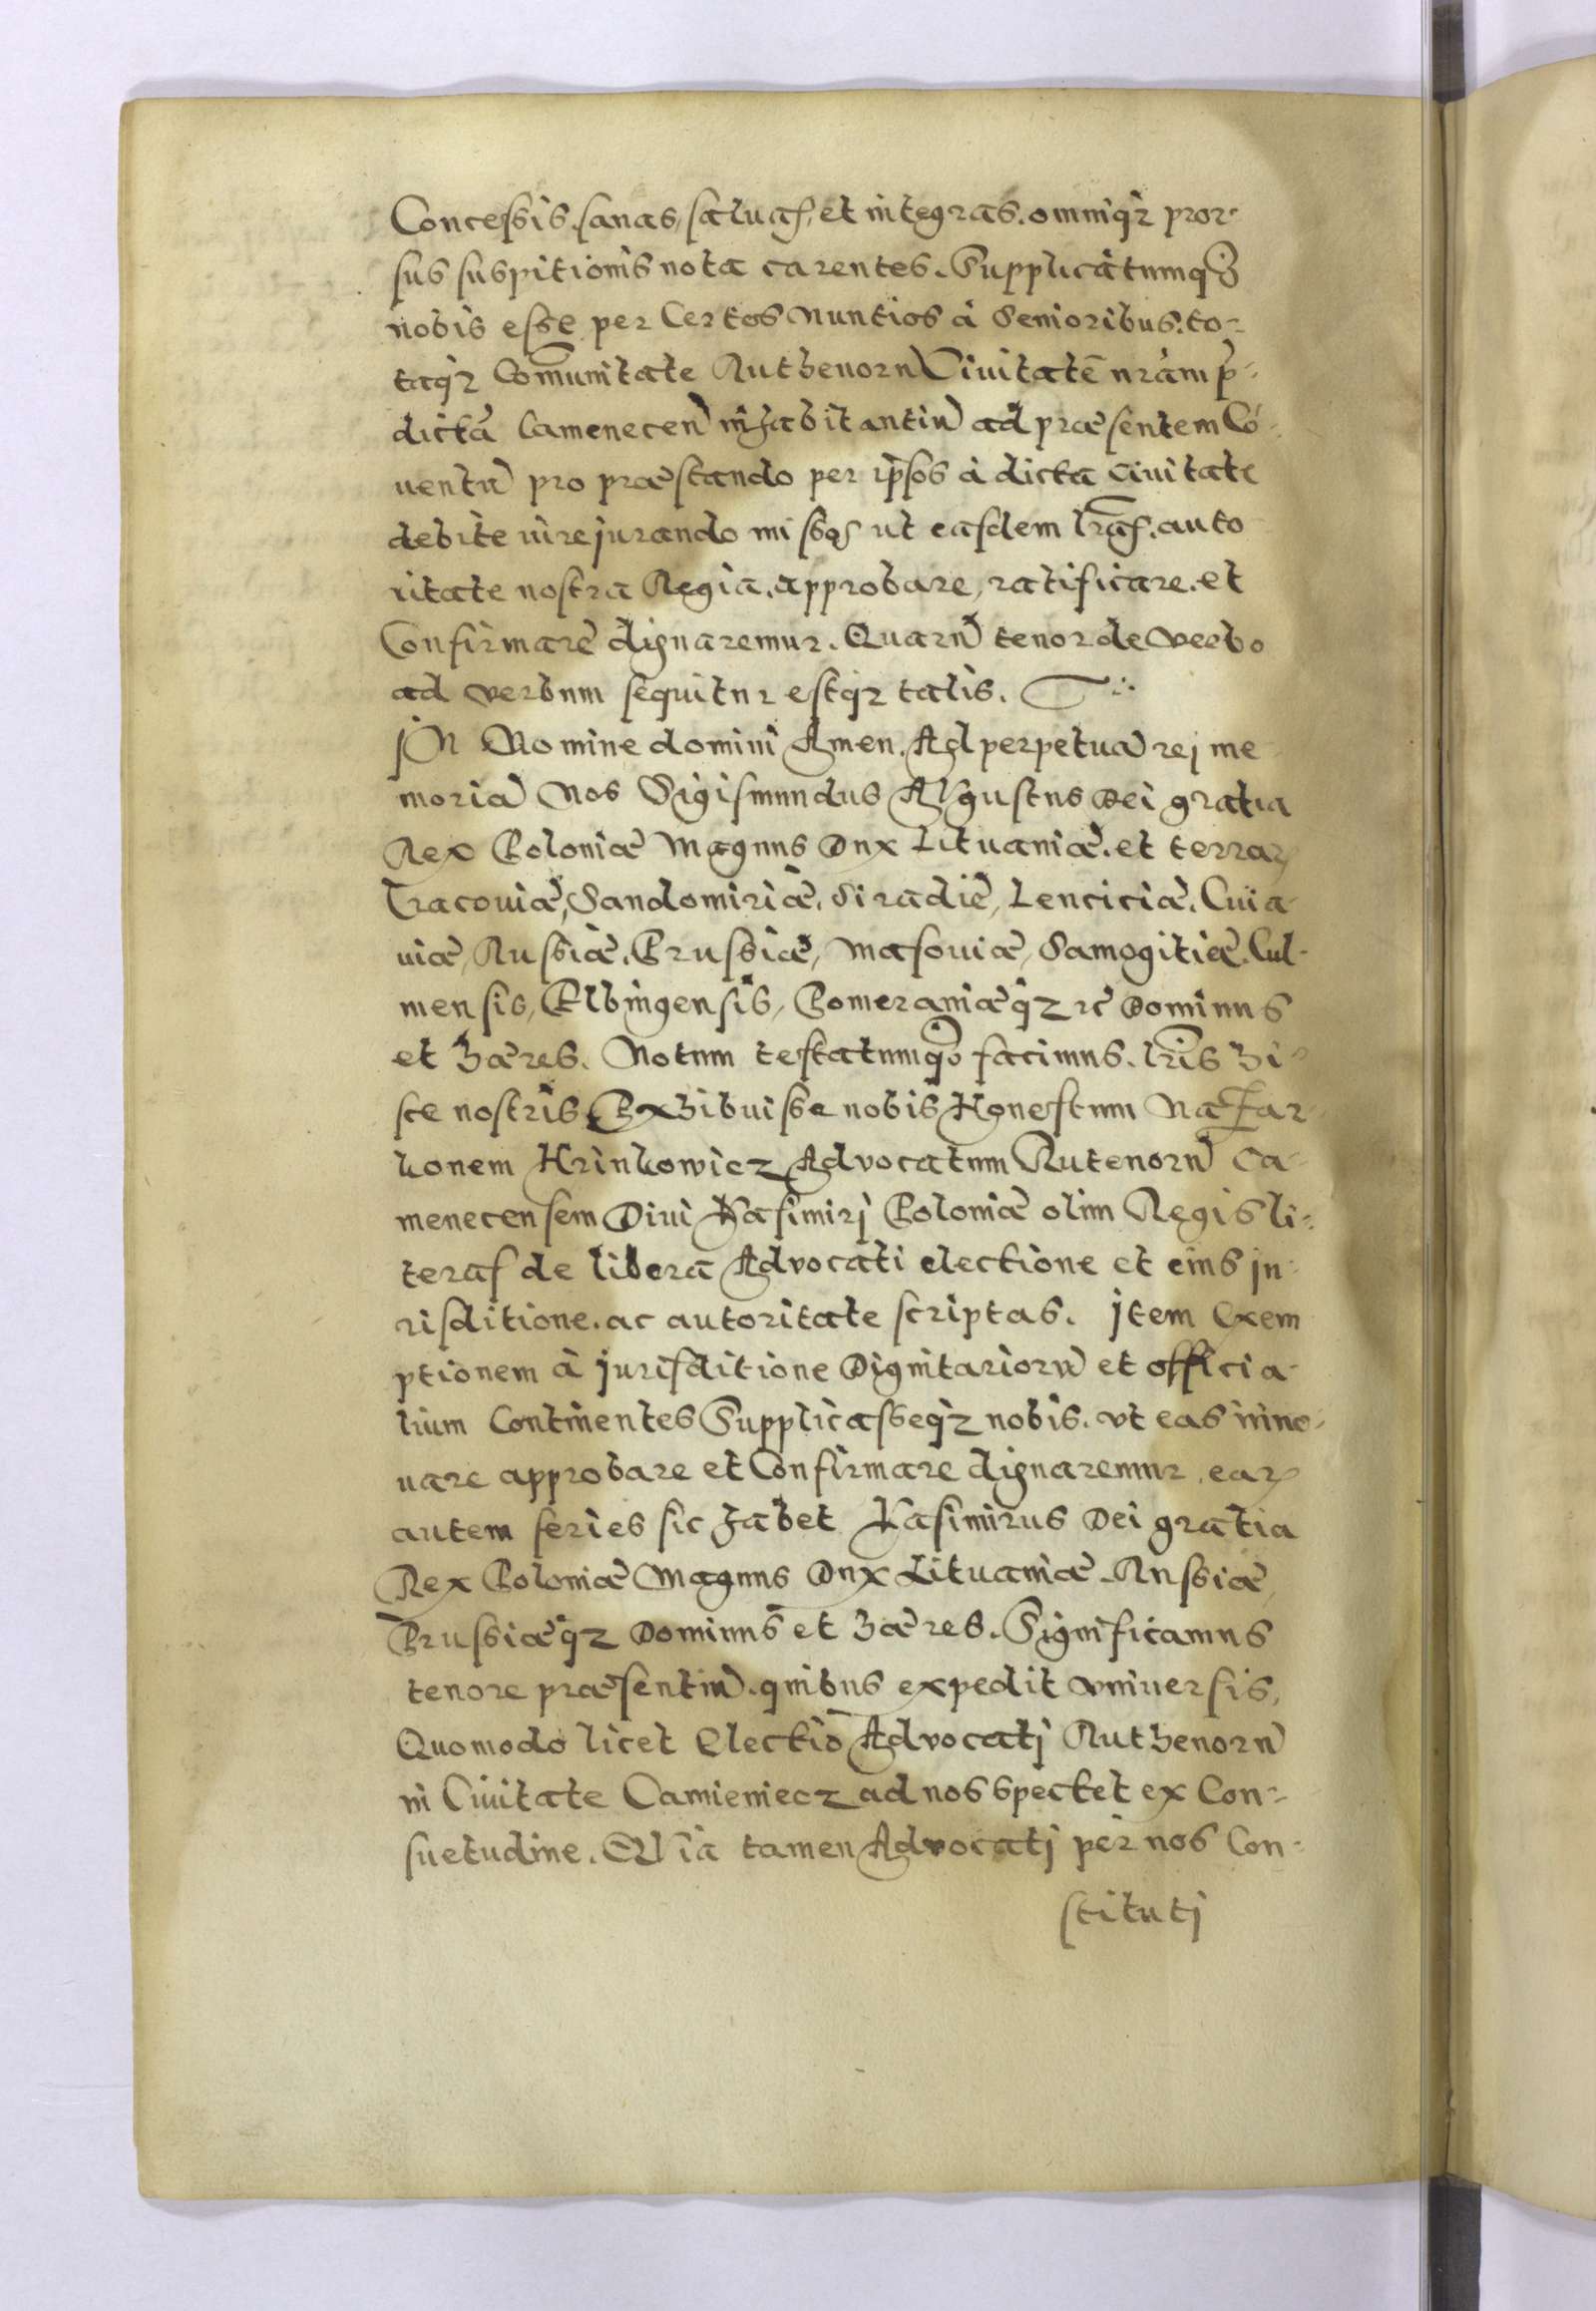 Concessis. sanas, saluas, et integras. omniq₃ pror-
sus suspitionis nota carentes. Supplicatumq₃
nobis esse per Certos Nuntios à Senioribus. to-
taq₃ Com̃unitate Ruthenorũ Ciuitatē nr̃am p̃-
dictā Camenecen̄ inhabitantiũ ad præsentem Cõ-
uentũ pro præstando per ip̃sos à dicta Ciuitate
debite iurejurando missos ut easdem lr̃as. auto
ritate nostra Regia. approbare, ratificare. et
Confirmare dignaremur. Quarũ tenor de verbo
ad verbum sequitur estq₃ talis.
IN Nomine domini Amen. Ad perpetuã rej me
moriã Nos Sigismundus Augustus Dei gratia
Rex Poloniæ Magnus Dux Lituaniæ. et terrarꝝ
Cracouiæ, Sandomiriæ. Siradiæ, Lenciciæ. Cuia-
uiæ, Russiæ. Prussiæ, Masouiæ, Samogitiæ. Cul-
mensis, Elbingensis, Pomeraniæq₃ ꝛc̃ Dominus
et hæres. Notum testatumq₃ facimus. lr̃is hi-
sce nostris Exhibuisse nobis Honestum Mathar-
konem Hrinkowicz Advocatum Rutenorũ Ca-
menecensem Diui Kasimirj Poloniæ olim Regis li-
teras de libera Advocati electione et eius ju-
risditione. ac autoritate scriptas. Jtem Exem
ptionem à jurisditione Dignitariorũ et officia-
lium Continentes Supplicasseq₃ nobis. vt eas inno-
uare approbare et Confirmare dignaremur. earꝝ
autem series sic habet Kasimirus Dei gratia
Rex Poloniæ Magnus Dux Lituaniæ. Russiæ,
Prussiæq₃ Dominus et hæres. Significamus
tenore præsentiũ. quibus expedit vniuersis,
Quomodo licet Electio Advocatj Ruthenorũ
in Ciuitate Camieniecz ad nos spectet ex Con-
suetudine. Quia tamen Advocatj per nos Con-
stitutj